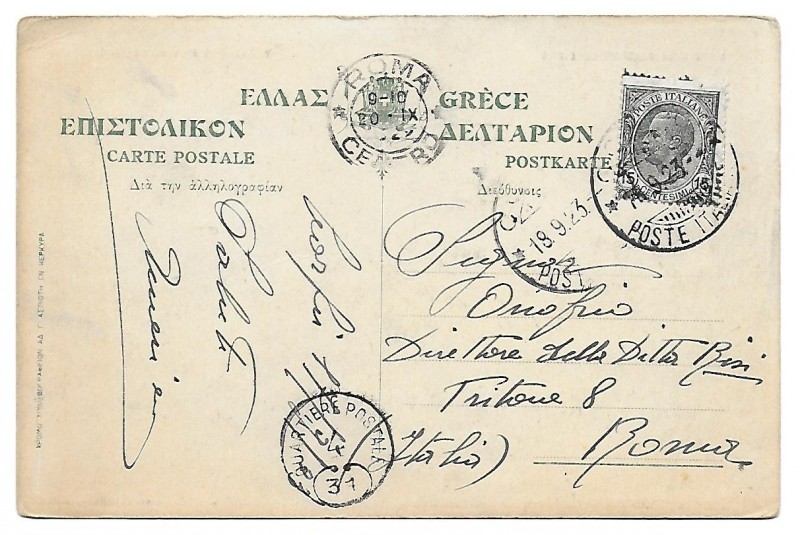 ΕΛΛΑΣ GRÈCE
ΕΠΙΣΤΟΛΙΚΟΝ ΔΕΛΤΑΡΙΟΝ
CARTE POSTALE POSTKARTE
Διὰ τὴν ἀλληλογραφίαν Διεύθυνσις
ROMA
19-10
20·IX
CENTRO
POSTE ITALIANE
15 CENTESIMI 15
POSTE ITALIANE
18.9.23
POST
Corfù
Saluti
Signor
Onofrio
Direttore della Ditta
Tritone 8
Roma
(Italia)
QUARTIERE POSTALE
31
ΕΝ ΚΕΡΚΥΡΑ